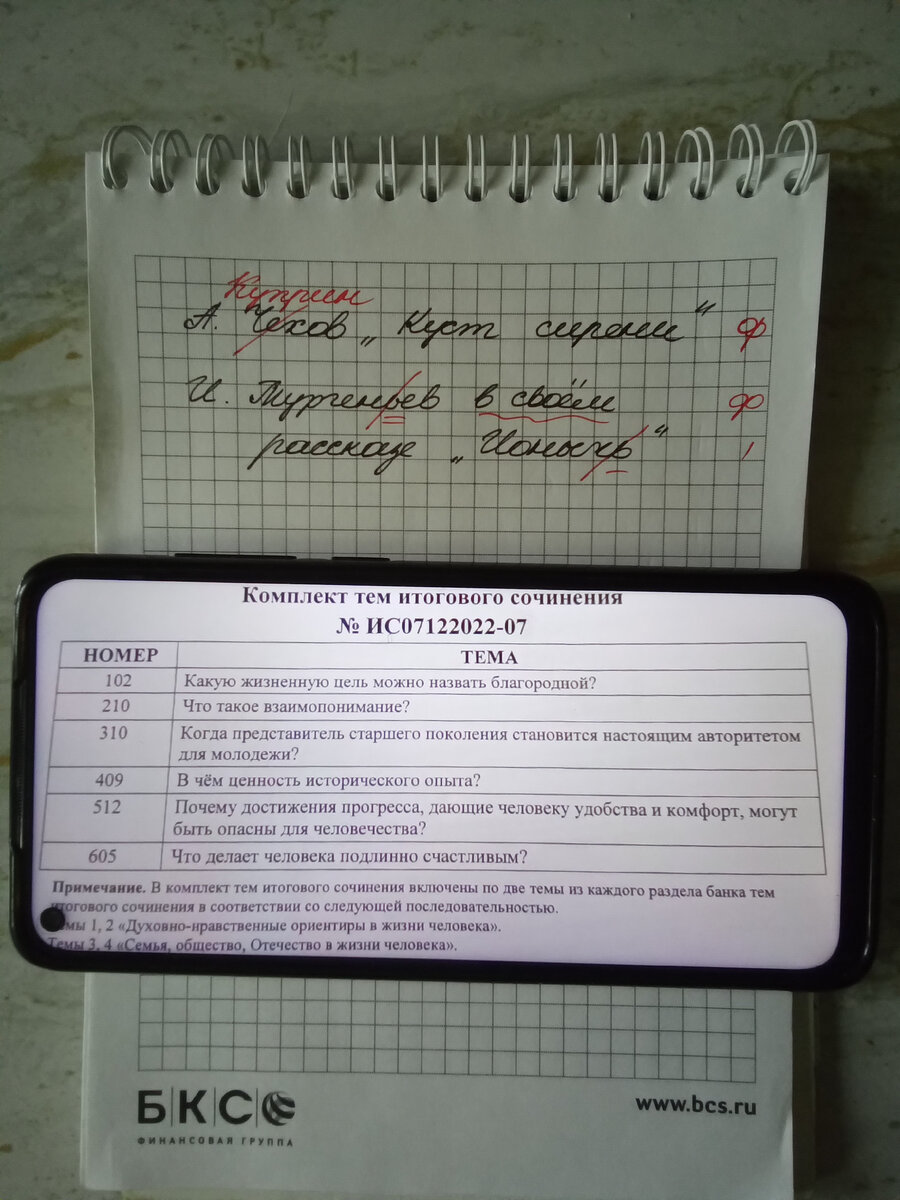 Куприн
А. Чехов „Куст сирени“ ф
И. Тургеньев в своём ф
рассказе „Ионычь“ /
Комплект тем итогового сочинения
№ ИС07122022-07
НОМЕР ТЕМА
102 Какую жизненную цель можно назвать благородной?
210 Что такое взаимопонимание?
310 Когда представитель старшего поколения становится настоящим авторитетом
для молодежи?
409 В чём ценность исторического опыта?
512 Почему достижения прогресса, дающие человеку удобства и комфорт, могут
быть опасны для человечества?
605 Что делает человека подлинно счастливым?
Примечание. В комплект тем итогового сочинения включены по две темы из каждого раздела банка тем
итогового сочинения в соответствии со следующей последовательностью.
Темы 1, 2 «Духовно-нравственные ориентиры в жизни человека».
Темы 3, 4 «Семья, общество, Отечество в жизни человека».
БКС www.bcs.ru
ФИНАНСОВАЯ ГРУППА